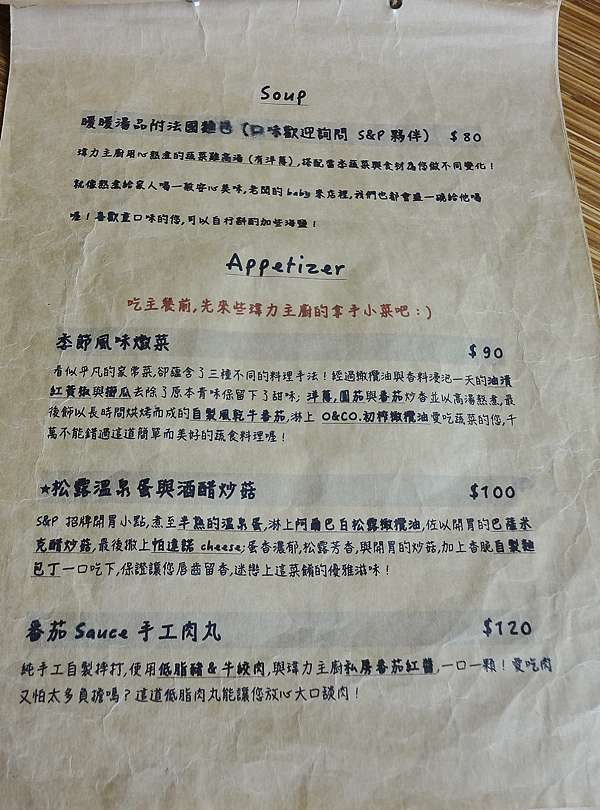 Soup
暖暖湯品附法國麵包 (口味歡迎詢問 S&P 夥伴) $80
瑋力主廚用心熬煮的蔬菜雞高湯 (有洋蔥),搭配當季蔬菜與食材為您做不同變化!
就像熬煮給家人喝一般安心美味,老闆的 baby 來店裡,我們也都會盛一碗給他喝
喔! 喜歡重口味的您,可以自行斟酌加些海鹽!
Appetizer
吃主餐前,先來些瑋力主廚的拿手小菜吧:)
季節風味燉菜 $90
看似平凡的家常菜,卻蘊含了三種不同的料理手法! 經過橄欖油與香料浸泡一天的油漬
紅黃椒與櫛瓜去除了原本青味保留下了甜味; 洋蔥,圓茄與番茄炒香並以高湯熬煮,最
後飾以長時間烘烤而成的自製風乾牛番茄,淋上 O&CO.初榨橄欖油愛吃蔬菜的您,千
萬不能錯過這道簡單而美好的蔬食料理喔!
★松露溫泉蛋與酒醋炒菇 $100
S&P 招牌開胃小點,煮至半熟的溫泉蛋,淋上阿爾巴白松露橄欖油,佐以開胃的巴薩米
克醋炒菇,最後撒上帕達諾 cheese;蛋香濃郁,松露芳香,與開胃的炒菇,加上香脆自製麵
包丁一口吃下,保證讓您唇齒留香,迷戀上這菜餚的優雅滋味!
番茄 Sauce 手工肉丸 $120
純手工自製摔打,使用低脂豬 & 牛絞肉,與瑋力主廚私房番茄紅醬,一口一顆! 愛吃肉
又怕太多負擔嗎? 這道低脂肉丸能讓您放心大口談肉!